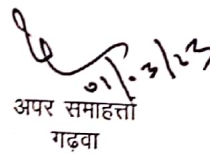 01/03/23
अपर समाहर्त्ता
गढ़वा